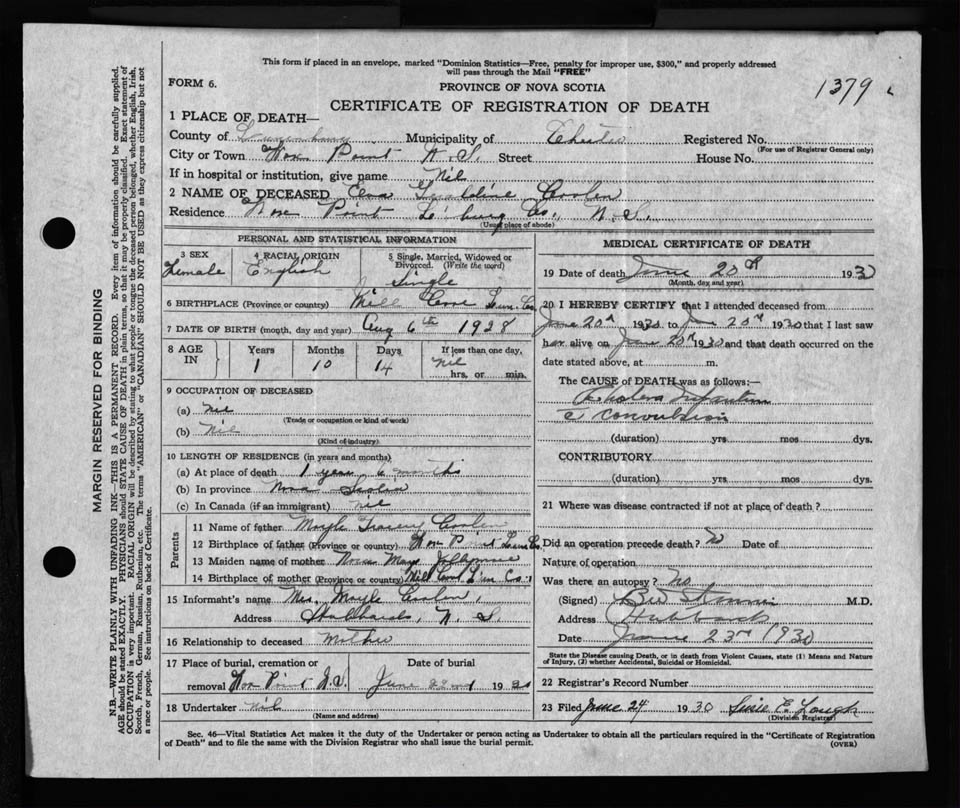 This form if placed in an envelope, marked "Dominion Statistics—Free, penalty for improper use, $300," and properly addressed
will pass through the Mail "FREE"
1379
FORM 6.
PROVINCE OF NOVA SCOTIA
CERTIFICATE OF REGISTRATION OF DEATH
1 PLACE OF DEATH—
County of Lunenburg Municipality of Chester Registered No.
(For use of Registrar General only)
City or Town Fox Point N.S. Street House No.
If in hospital or institution, give name Nil
2 NAME OF DECEASED Geraldine Coolen
Residence Fox Point L'burg Co. N.S.
(Usual place of abode)
PERSONAL AND STATISTICAL INFORMATION
3 SEX
Female
4 RACIAL ORIGIN
English
5 Single, Married, Widowed or
Divorced. (Write the word)
Single
6 BIRTHPLACE (Province or country) Mill Cove Lun. Co.
7 DATE OF BIRTH (month, day and year) Aug 6th 1928
8 AGE IN
Years Months Days If less than one day,
1 10 14 nil
hrs. or min.
9 OCCUPATION OF DECEASED
(a) nil
(Trade or occupation or kind of work)
(b) nil
(Kind of industry)
10 LENGTH OF RESIDENCE (in years and months)
(a) At place of death 1 year 6 months
(b) In province Nova Scotia
(c) In Canada (if an immigrant) nil
Parents
11 Name of father Moyle Coolen
12 Birthplace of father (Province or country) Fox Point Lun Co.
13 Maiden name of mother May
14 Birthplace of mother (Province or country) Mill Cove Lun Co.
15 Informant's name Mrs. Moyle Coolen,
Address Hubbards, N. S.
16 Relationship to deceased Mother
17 Place of burial, cremation or Date of burial
removal Fox Point N.S. June 22nd 1930
18 Undertaker nil
(Name and address)
MEDICAL CERTIFICATE OF DEATH
19 Date of death June 20th 1930
(Month, day and year)
20 I HEREBY CERTIFY that I attended deceased from
June 20th 1930 to June 20th 1930 that I last saw
her alive on June 20th 1930 and that death occurred on the
date stated above, at m.
The CAUSE of DEATH was as follows:—
Cholera Infantum
c convulsion
(duration) yrs mos dys.
CONTRIBUTORY
(duration) yrs mos dys.
21 Where was disease contracted if not at place of death?
Did an operation precede death? No Date of
Nature of operation
Was there an autopsy? no
(Signed) M.D.
Address Hubbards
Date June 23rd 1930
State the Disease causing Death, or in death from Violent Causes, state (1) Means and Nature
of Injury, (2) whether Accidental, Suicidal or Homicidal.
22 Registrar's Record Number
23 Filed June 24 1930 Susie E.
(Division Registrar)
Sec. 46—Vital Statistics Act makes it the duty of the Undertaker or person acting as Undertaker to obtain all the particulars required in the "Certificate of Registration
of Death" and to file the same with the Division Registrar who shall issue the burial permit.
(OVER)
MARGIN RESERVED FOR BINDING
N.B.—WRITE PLAINLY WITH UNFADING INK—THIS IS A PERMANENT RECORD. Every item of information should be carefully supplied.
AGE should be stated EXACTLY. PHYSICIANS should STATE CAUSE OF DEATH in plain terms, so that it may be properly classified. Exact statement of
OCCUPATION is very important. RACIAL ORIGIN will be described by stating to what people or tongue the deceased person belonged, whether English, Irish,
Scotch, French, German, Russian, Ruthenian, etc. The terms "AMERICAN" or "CANADIAN" SHOULD NOT BE USED as they express citizenship but not
a race or people. See instructions on back of Certificate.